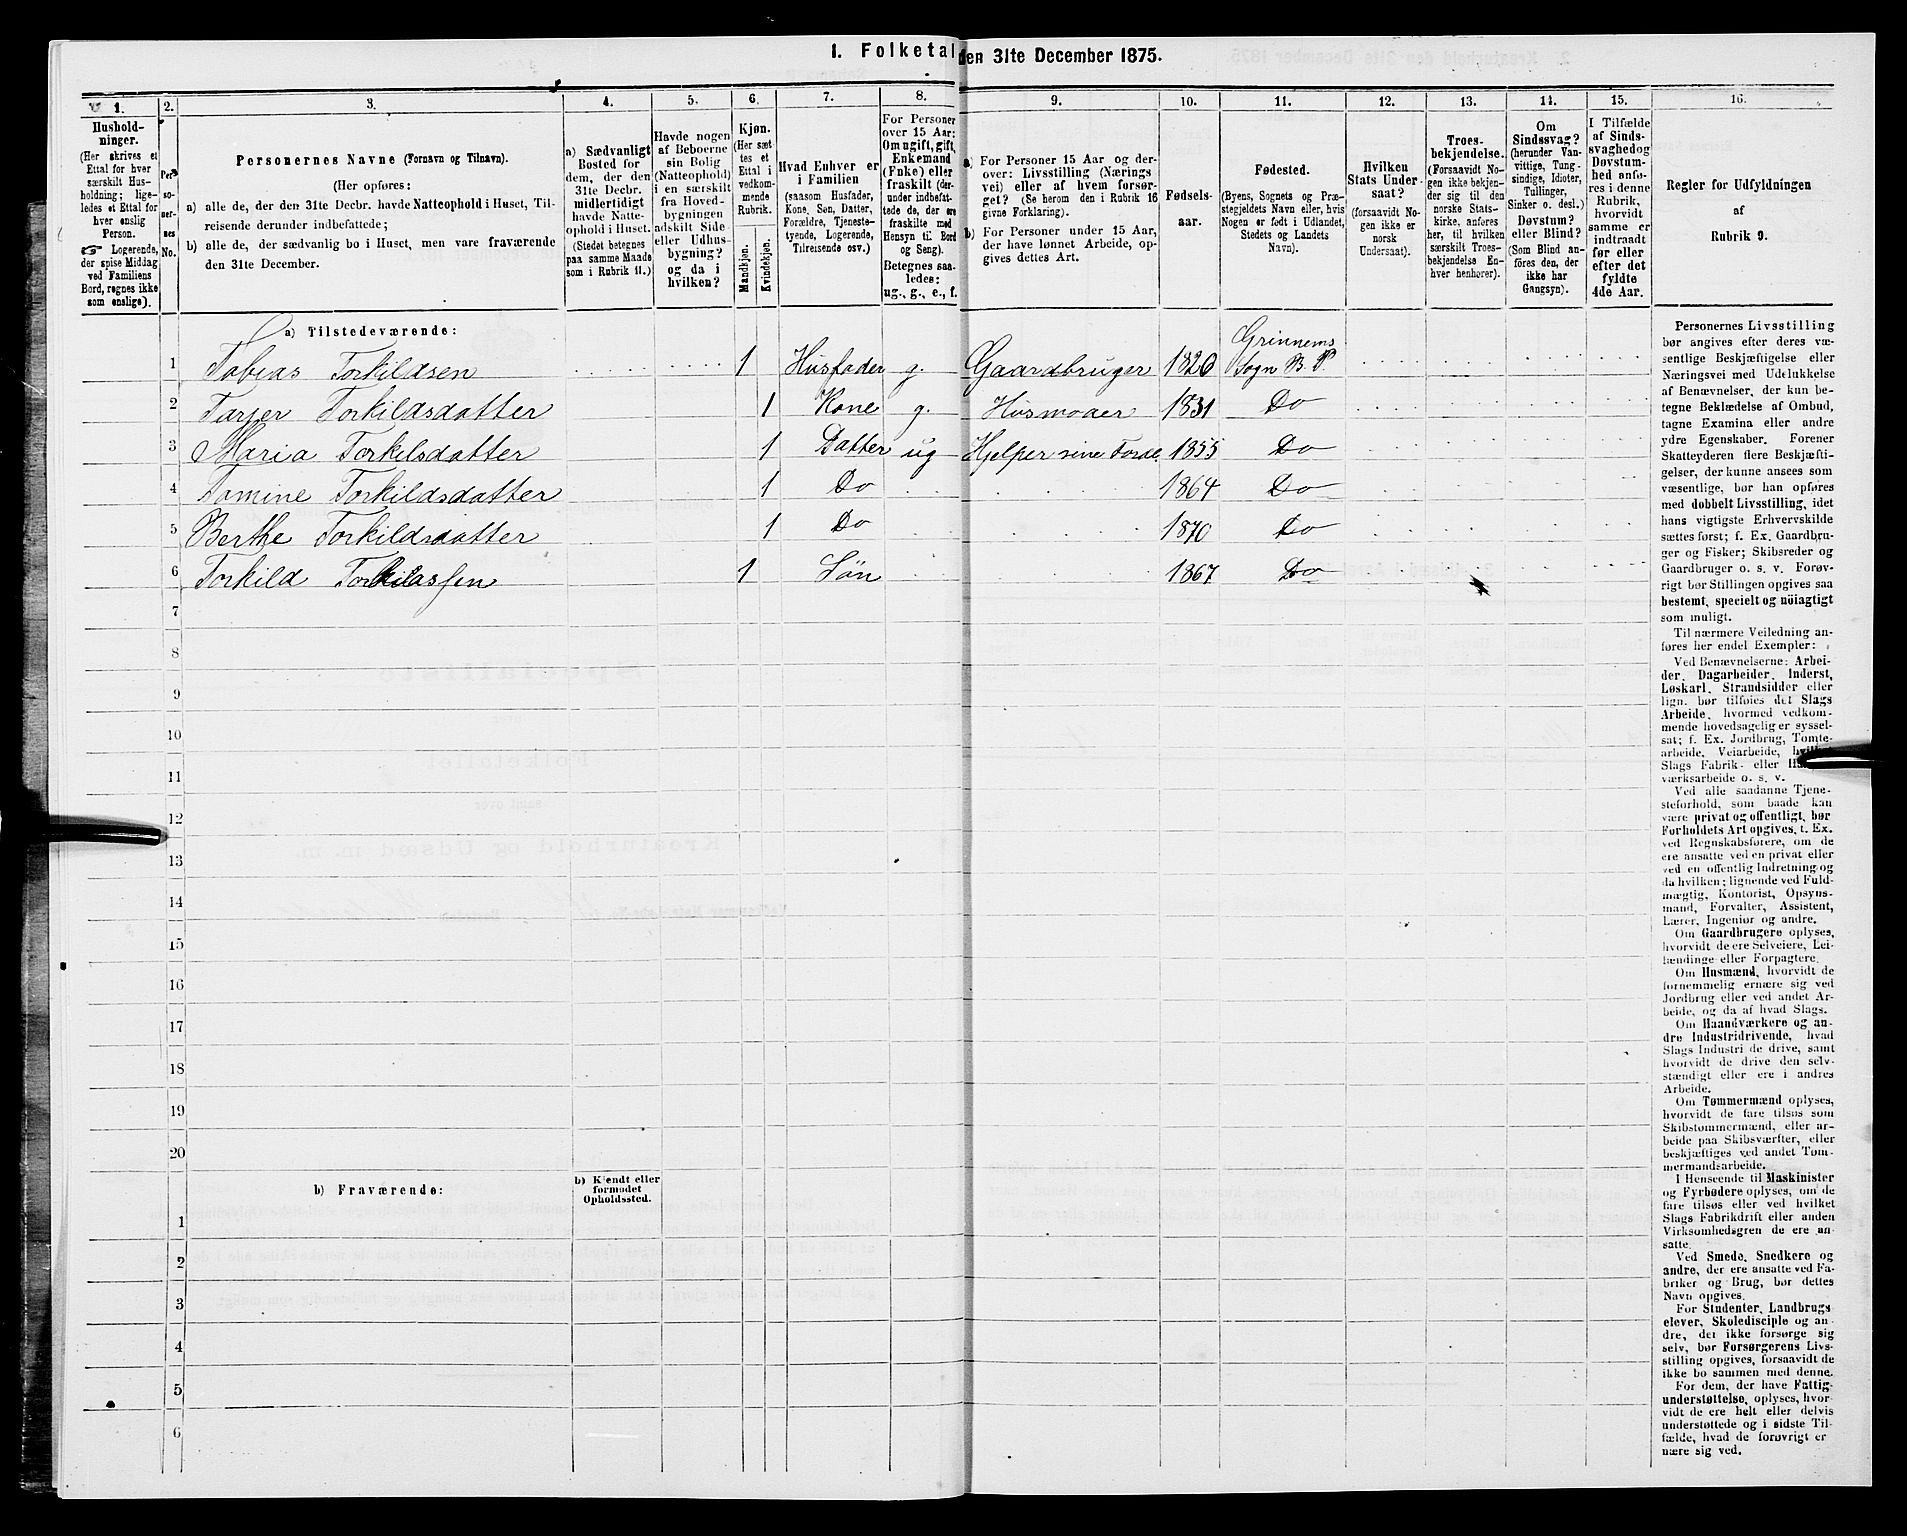 1. Folketal den 31te December 1875.
1.
Hushold-
ninger.
(Her skrives et
Ettal for hver
særskilt Hus-
holdning; lige-
ledes et Ettal for
hver enslig
Person.
☞ Logerende,
der spise Middag
ved Familiens
Bord, regnes ikke
som enslige).
2.
Per-
so-
ner-
nes
No.
3.
Personernes Navne (Fornavn og Tilnavn).
(Her opføres:
a) alle de, der den 31te Decbr. havde Natteophold i Huset, Til-
reisende derunder indbefattede;
b) alle de, der sædvanlig bo i Huset, men vare fraværende
den 31te December.
4.
a) Sædvanligt
Bosted for
dem, der den
31te Decbr.
midlertidigt
havde Natte-
ophold i Huset.
(Stedet betegnes
paa samme Maade
som i Rubrik 11.)
5.
Havde nogen
af Beboerne
sin Bolig
(Natteophold)
i en særskilt
fra Hoved-
bygningen
adskilt Side-
eller Udhus-
bygning?
og da i
hvilken?
6.
Kjøn.
(Her sæt-
tes et
Ettal i
vedkom-
mende
Rubrik.
Mandkjøn.
Kvindekjøn.
7.
Hvad Enhver er
i Familien
(saasom Husfader,
Kone, Søn, Datter,
Forældre, Tjeneste-
tyende, Logerende,
Tilreisende osv.)
8.
For Personer
over 15 Aar:
Om ugift, gift,
Enkemand
(Enke) eller
fraskilt (der-
under indbefat-
tede de, der ere
fraskilte med
Hensyn til Bord
og Seng).
Betegnes saa-
ledes:
ug., g., e., f.
9.
a) For Personer 15 Aar og der-
over: Livsstilling (Nærings-
vei) eller af hvem forsør-
get? (Se herom den i Rubrik 16
givne Forklaring).
b) For Personer under 15 Aar,
der have lønnet Arbeide, op-
gives dettes Art.
10.
Fødsels-
aar.
11.
Fødested.
(Byens, Sognets og Præ-
stegjeldets Navn eller, hvis
Nogen er født i Udlandet,
Stedets og Landets
Navn).
12.
Hvilken
Stats Under-
saat?
(forsaavidt No-
gen ikke er
norsk
Undersaat).
13.
Troes-
bekjendelse.
(Forsaavidt No-
gen ikke bekjen-
der sig til den
norske Stats-
kirke, anføres
her, til hvilken
særskilt Troes-
bekjendelse En-
hver henhører).
14.
Om
Sindssvag?
(herunder Van-
vittige, Tung-
sindige, Idioter,
Tullinger,
Sinker o. desl.)
Døvstum?
eller Blind?
(Som Blind an-
føres den, der
ikke har
Gangsyn).
15.
I Tilfælde
af Sinds-
svaghed og
Døvstum-
hed anfø-
res i denne
Rubrik,
hvorvidt
samme er
indtraadt
før eller
efter det
fyldte
4de Aar.
16.
Regler for Udfyldningen
af
Rubrik 9.
a) Tilstedeværende:
1 Tobias Torkildsen 1 Husfader g. Gaardbruger 1820 Grinnems
Sogn B. P.
2 Tarjer Torkildsdatter 1 Kone g. Husmoder 1831 Do
3 Maria Torkilsdatter 1 Datter ug Hjelper sine Foræl. 1855 Do
4 Tomine Torkildsdatter 1 Do 1864 Do
5 Berthe Torkildsdatter 1 Do 1870 Do
6 Torkild Torkildssen 1 Søn 1867 Do
7
8
9
10
11
12
13
14
15
16
17
18
19
20
b) Fraværende:
b) Kjendt eller
formodet
Opholdssted.
1
2
3
4
5
6
Personernes Livsstilling
bør angives efter deres væ-
sentlige Beskjæftigelse eller
Næringsvei med Udelukkelse
af Benævnelser, der kun be-
tegne Beklædelse af Ombud,
tagne Examina eller andre
ydre Egenskaber. Forener
Skatteyderen flere Beskjæfti-
gelser, der kunne ansees som
væsentlige, bør han opføres
med dobbelt Livsstilling, idet
hans vigtigste Erhvervskilde
sættes først; f. Ex. Gaardbru-
ger og Fisker; Skibsreder og
Gaardbruger o. s. v. Forøv-
rigt bør Stillingen opgives saa
bestemt, specielt og nøiagtigt
som muligt.
Til nærmere Veiledning an-
føres her endel Exempler:
Ved Benævnelserne: Arbei-
der, Dagarbeider, Inderst,
Løskarl, Strandsidder eller
lign. bør tilføies det Slags
Arbeide, hvormed vedkom-
mende hovedsagelig er syssel-
sat; f. Ex. Jordbrug, Tomte-
arbeide, Veiarbeide, hvilket
Slags Fabrik- eller
værksarbeide o. s. v.
Ved alle saadanne Tjene-
steforhold, som baade kan
være privat og offentligt, bør
Forholdets Art opgives, t. Ex.
ved Regnskabsførere, om de
ere ansatte ved en privat eller
ved en offentlig Indretning og
da hvilken; lignende ved Fuld-
mægtig, Kontorist, Opsyns-
mand, Forvalter, Assistent,
Lærer, Ingeniør og andre.
Om Gaardbrugere oplyses,
hvorvidt de ere Selveiere, Lei-
lændinge eller Forpagtere.
Om Husmænd, hvorvidt de
fornemmelig ernære sig ved
Jordbrug eller ved andet Ar-
beide, og da af hvad Slags.
Om Haandværkere og an-
dre Industridrivende, hvad
Slags Industri de drive, samt
hvorvidt de drive den selv-
stændigt eller ere i andres
Arbeide.
Om Tømmermænd oplyses,
hvorvidt de fare tilsøs som
Skibstømmermænd, eller ar-
beide paa Skibsværfter, eller
beskjæftiges ved andet Tøm-
mermandsarbeide.
I Henseende til Maskinister
og Fyrbødere oplyses, om de
fare tilsøs eller ved hvilket
Slags Fabrikdrift eller anden
Virksomhedsgren de ere an-
satte.
Ved Smede, Snedkere og
andre, der ere ansatte ved Fa-
briker og Brug, bør dettes
Navn opgives.
For Studenter, Landbrugs-
elever, Skoledisciple og an-
dre, der ikke forsørge sig
selv, bør Forsørgerens Livs-
stilling opgives, forsaavidt de
ikke bo sammen med denne.
For dem, der have Fattig-
understøttelse, oplyses, hvor-
vidt de ere helt eller delvis
understøttede og i sidste Til-
fælde, hvad de forøvrigt er-
nære sig ved.